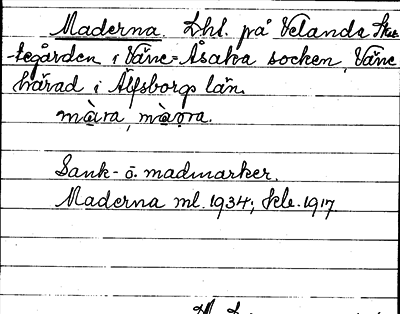 Maderna. Lht. på Velanda Stu-
tegården i Väne-Åsaka socken, Väne
härad i Älfsborgs län.
màra, màơra.
Sank- o. madmarker.
Maderna ml. 1934; skle. 1917.